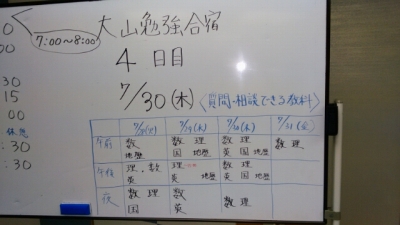 0
7:00~8:00
大山勉強合宿
4日目
7/30(木)
〈質問・相談できる教科〉
00
30
15
00
休憩
:30
:30
7/29(水) 7/30(木) 7/31(金)
午前 数 地歴 数理 国 地歴 数理 英国 地歴 数理
午後 理・数 英 理 英 地歴 数理 英国 地歴
夜 数理 国 数 英 数理